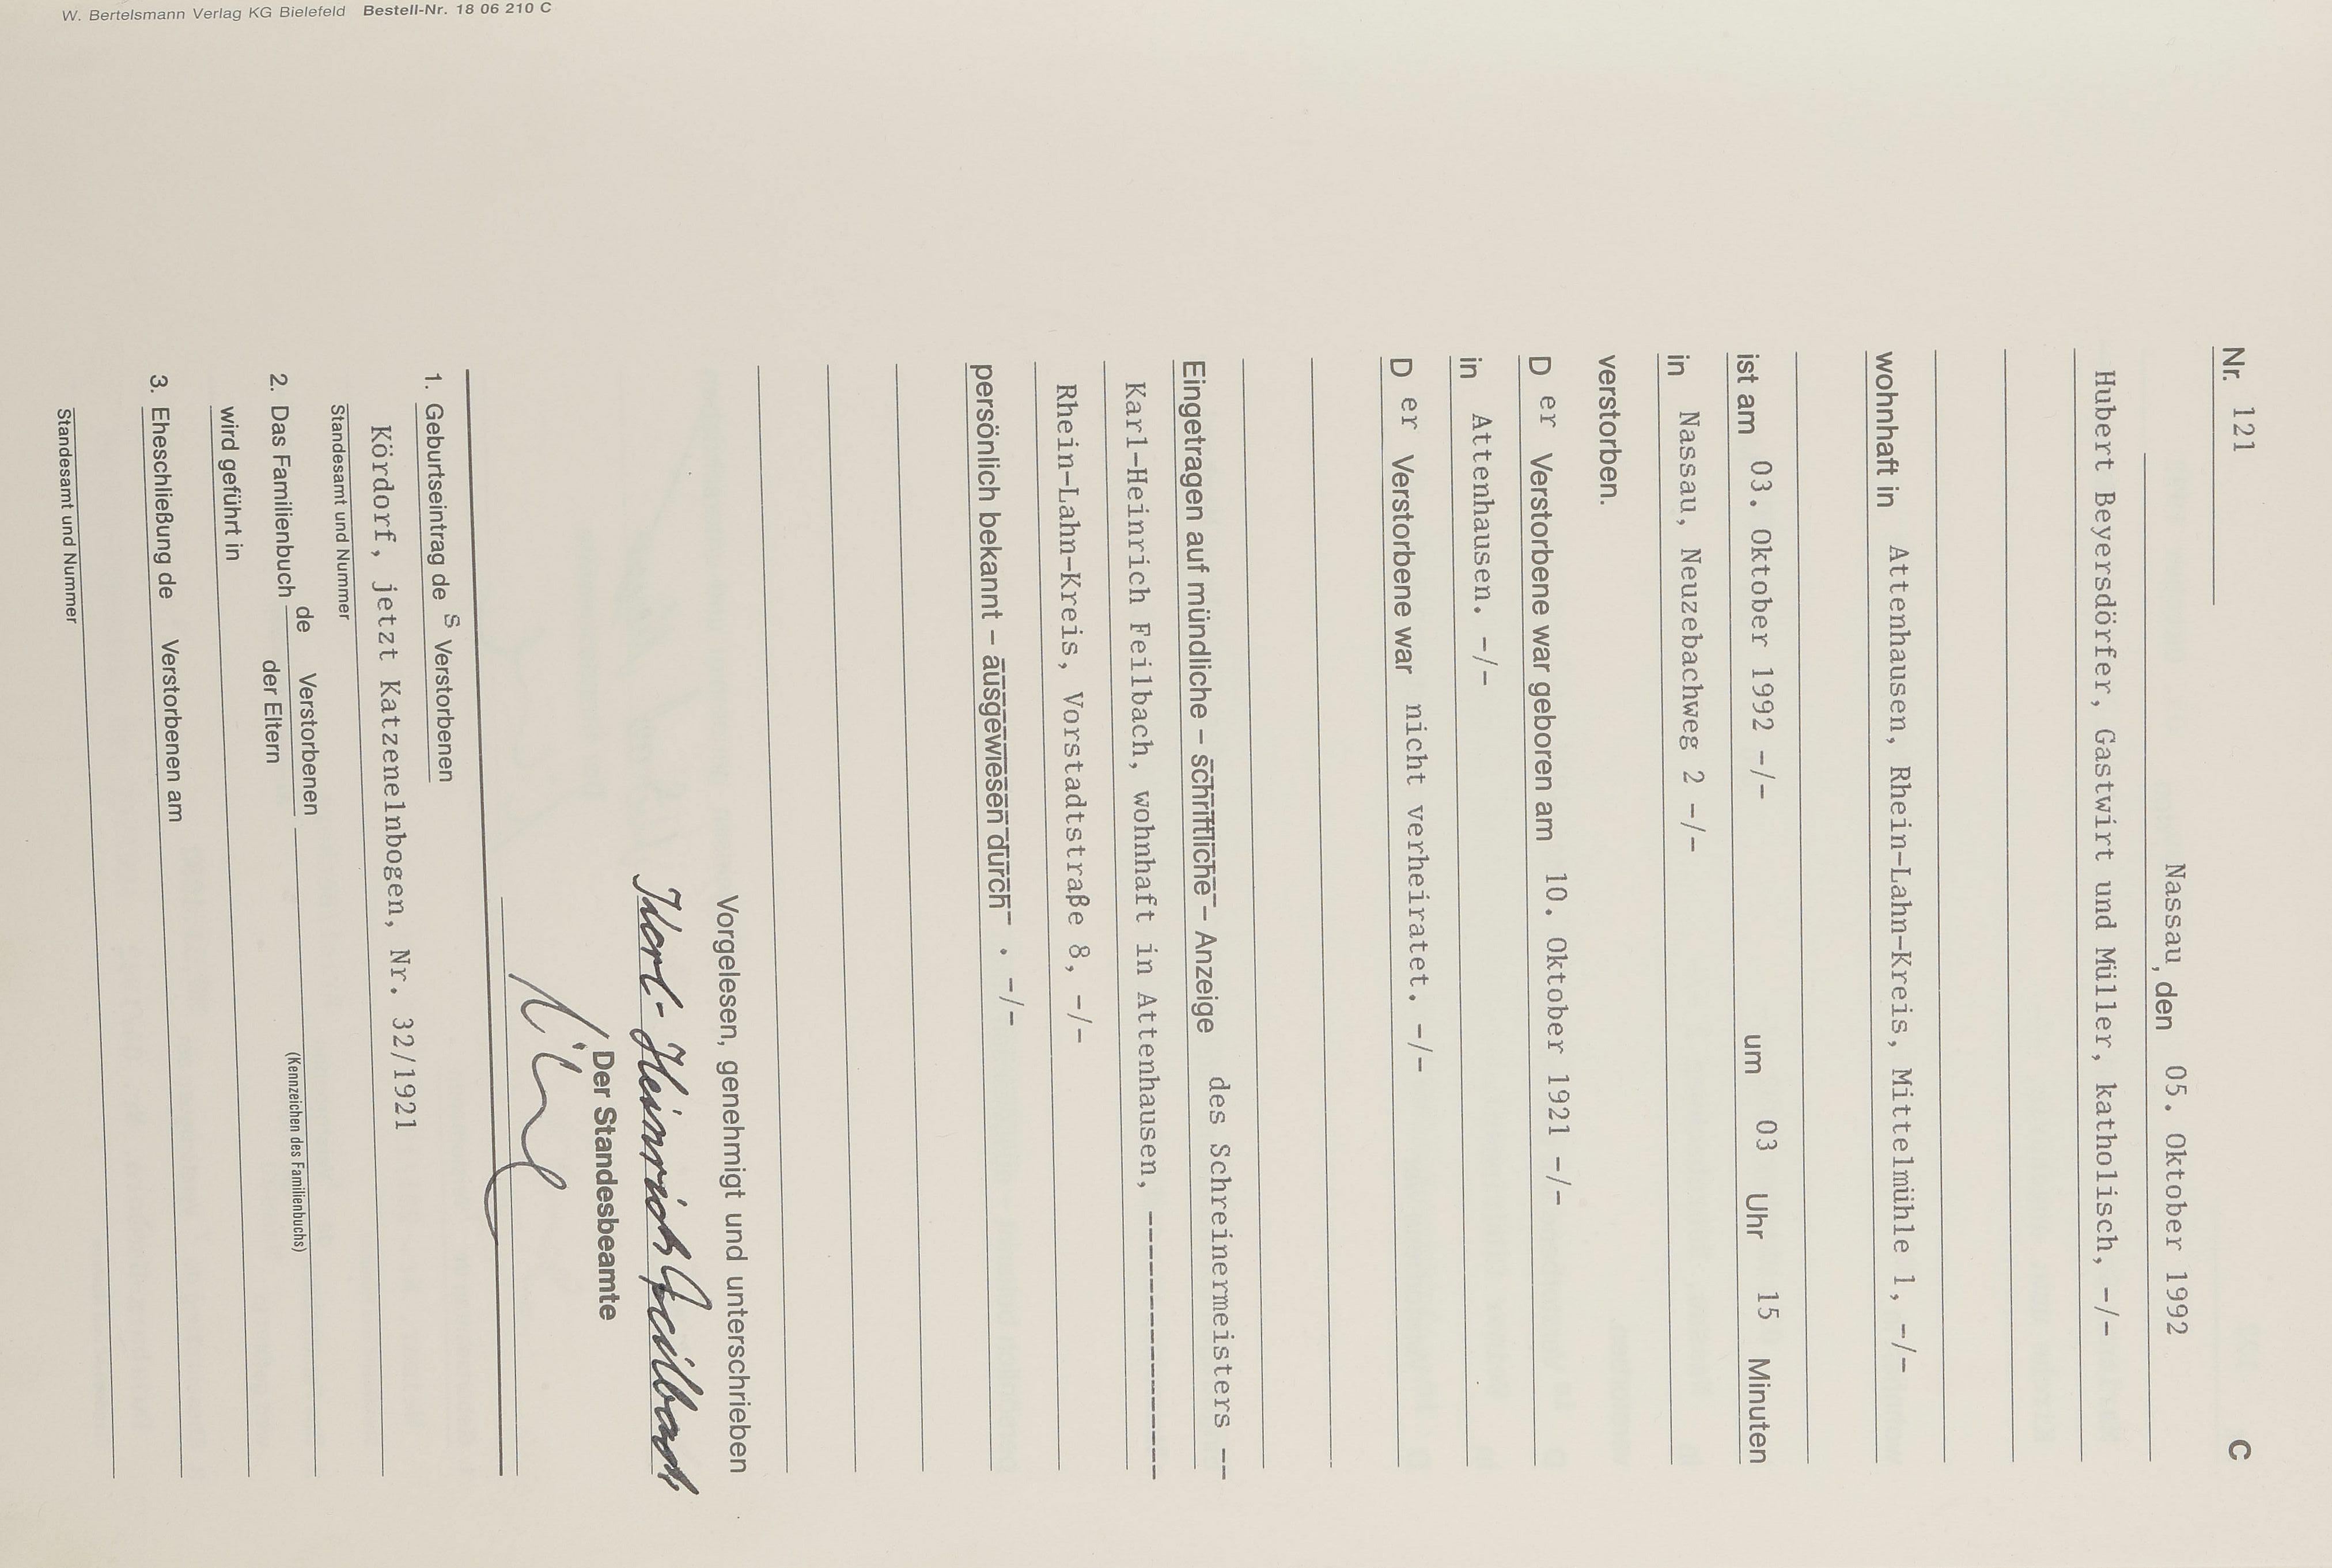 Nr. 121 C
Nassau, den 05. Oktober 1992
Hubert Beyersdörfer, Gastwirt und Müller, katholisch, -/-
wohnhaft in Attenhausen, Rhein-Lahn-Kreis, Mittelmühle 1, -/-
ist am 03. Oktober 1992 -/- um 03 Uhr 15 Minuten
in Nassau, Neuzebachweg 2 -/-
verstorben.
D er Verstorbene war geboren am 10. Oktober 1921 -/-
in Attenhausen. -/-
D er Verstorbene war nicht verheiratet. -/-
Eingetragen auf mündliche – schriftliche – Anzeige des Schreinermeisters --
Karl-Heinrich Feilbach, wohnhaft in Attenhausen, ----------------
Rhein-Lahn-Kreis, Vorstadtstraße 8, -/-
persönlich bekannt – ausgewiesen durch . -/-
Vorgelesen, genehmigt und unterschrieben
Karl-Heinrich Feilbach
Der Standesbeamte
1. Geburtseintrag de s Verstorbenen
Kördorf, jetzt Katzenelnbogen, Nr. 32/1921
Standesamt und Nummer
2. Das Familienbuch de Verstorbenen
der Eltern
(Kennzeichen des Familienbuchs)
wird geführt in
3. Eheschließung de Verstorbenen am
Standesamt und Nummer
W. Bertelsmann Verlag KG Bielefeld Bestell-Nr. 18 06 210 C